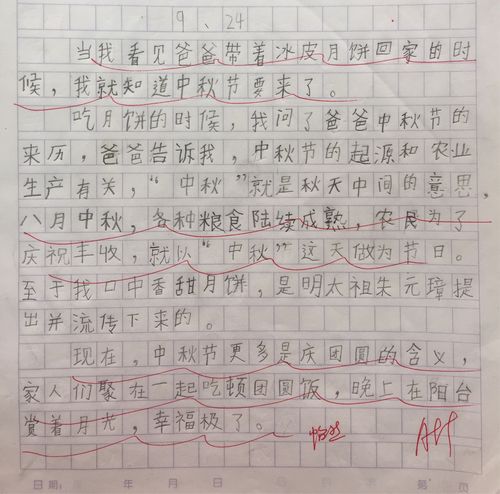 9、24
当我看见爸爸带着冰皮月饼回家的时
候，我就知道中秋节要来了。
吃月饼的时候，我问了爸爸中秋节的
来历，爸爸告诉我，中秋节的起源和农业
生产有关，“中秋”就是秋天中间的意思，
八月中秋，各种粮食陆续成熟，农民为了
庆祝丰收，就以“中秋”这天做为节日。
至于我口中香甜月饼，是明太祖朱元璋提
出并流传下来的。
现在，中秋节更多是庆团圆的含义，
家人们聚在一起吃顿团圆饭，晚上在阳台
赏着月光，幸福极了。
日期： 年 月 日 第 页